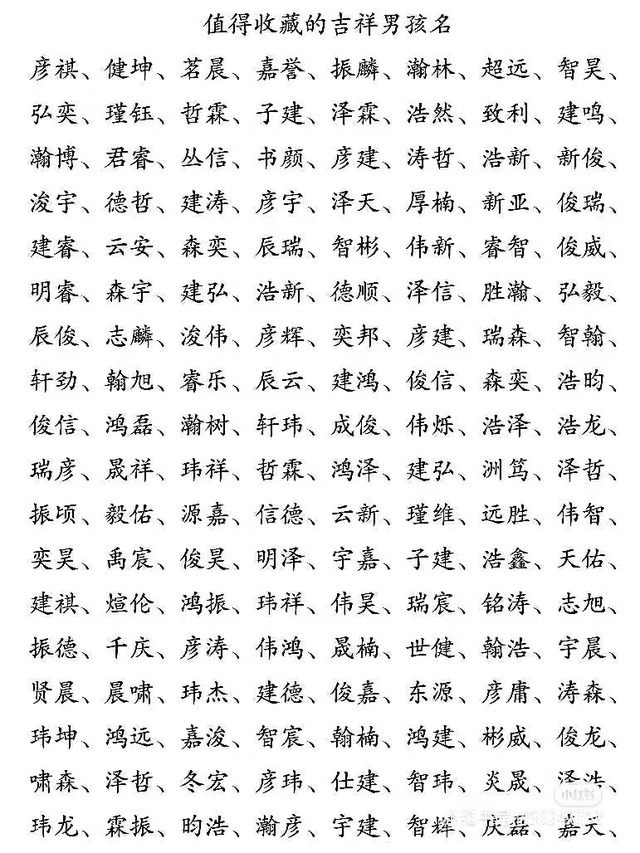 值得收藏的吉祥男孩名
彦祺、健坤、茗晨、嘉誉、振麟、瀚林、超远、智昊、
弘奕、瑾钰、哲霖、子建、泽霖、浩然、致利、建鸣、
瀚博、君睿、丛信、书颜、彦建、涛哲、浩新、新俊、
浚宇、德哲、建涛、彦宇、泽天、厚楠、新亚、俊瑞、
建睿、云安、森奕、辰瑞、智彬、伟新、睿智、俊威、
明睿、森宇、建弘、浩新、德顺、泽信、胜瀚、弘毅、
辰俊、志麟、浚伟、彦辉、奕邦、彦建、瑞森、智翰、
轩劲、翰旭、睿乐、辰云、建鸿、俊信、森奕、浩昀、
俊信、鸿磊、瀚树、轩玮、成俊、伟烁、浩泽、浩龙、
瑞彦、晟祥、玮祥、哲霖、鸿泽、建弘、洲笃、泽哲、
振顷、毅佑、源嘉、信德、云新、瑾维、远胜、伟智、
奕昊、禹宸、俊昊、明泽、宇嘉、子建、浩鑫、天佑、
建祺、煊伦、鸿振、玮祥、伟昊、瑞宸、铭涛、志旭、
振德、千庆、彦涛、伟鸿、晟楠、世健、翰浩、宇晨、
贤晨、晨啸、玮杰、建德、俊嘉、东源、彦庸、涛森、
玮坤、鸿远、嘉浚、智宸、翰楠、鸿建、彬威、俊龙、
啸森、泽哲、冬宏、彦玮、仕建、智玮、炎晟、泽浩、
小红书
玮龙、霖振、昀浩、瀚彦、宇建、智辉、庆磊、嘉天、